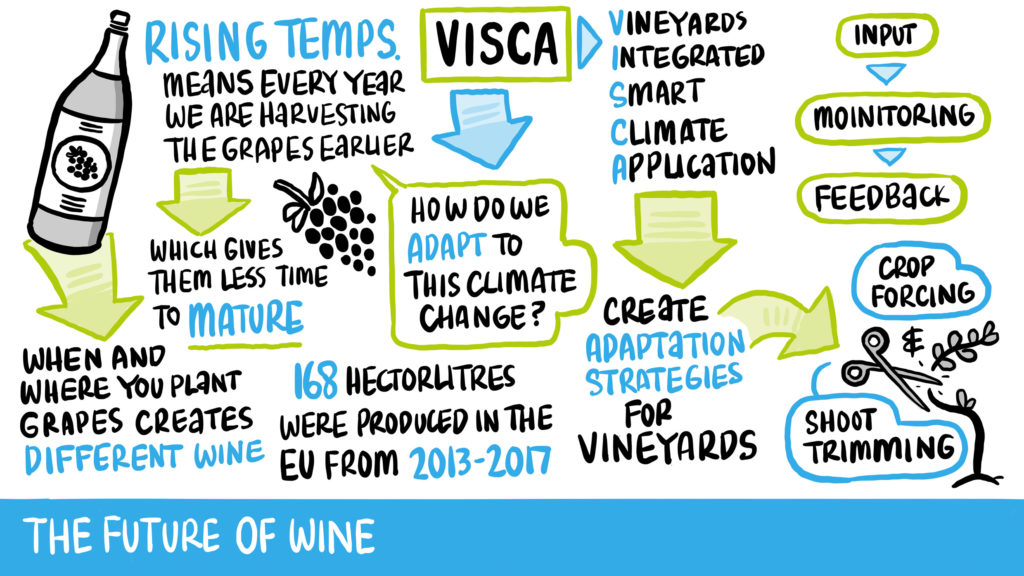 RISING TEMPS.
MEANS EVERY YEAR
WE ARE HARVESTING
THE GRAPES EARLIER
WHICH GIVES
THEM LESS TIME
TO MATURE
WHEN AND
WHERE YOU PLANT
GRAPES CREATES
DIFFERENT WINE
VISCA
VINEYARDS
INTEGRATED
SMART
CLIMATE
APPLICATION
HOW DO WE
ADAPT TO
THIS CLIMATE
CHANGE?
168 HECTORLITRES
WERE PRODUCED IN THE
EU FROM 2013-2017
CREATE
ADAPTATION
STRATEGIES
FOR
VINEYARDS
INPUT
MOINITORING
FEEDBACK
CROP
FORCING
&
SHOOT
TRIMMING
THE FUTURE OF WINE